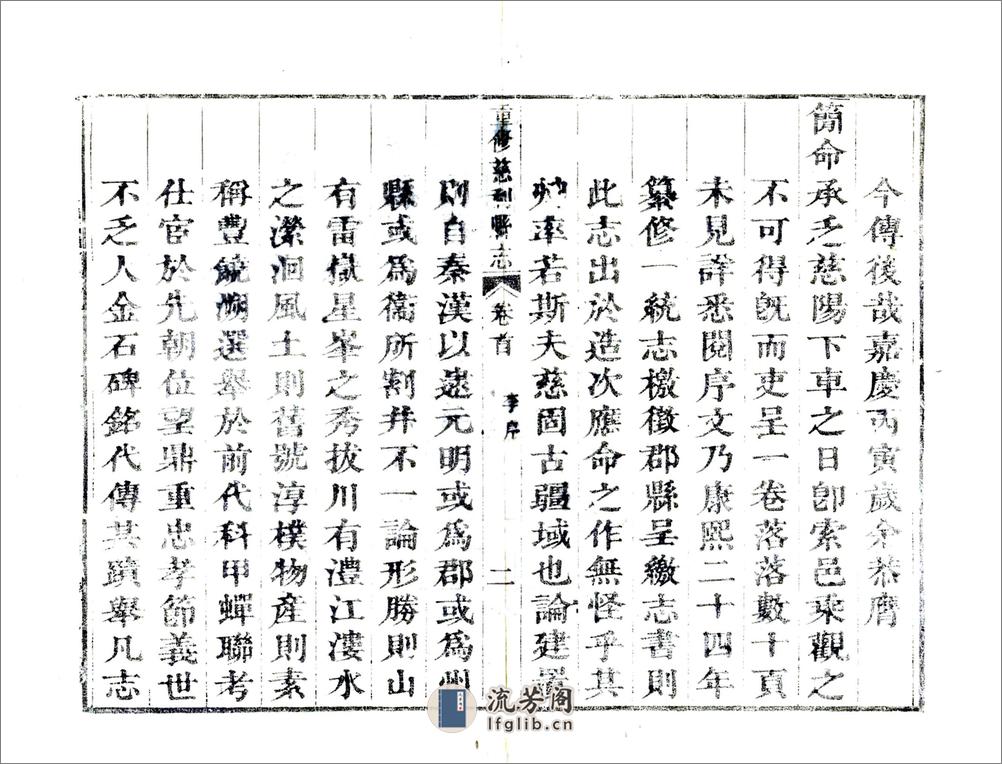 今傳後哉嘉慶丙寅歲余恭膺
簡命承乏慈陽下車之日卽索邑乘觀之
不可得旣而吏呈一卷落落數十頁
未見詳悉閱序文乃康熙二十四年
纂修一統志檄徵郡縣呈繳志書則
此志出於造次應命之作無怪乎其
草率若斯夫慈固古疆域也論建置
重修慈利縣志 卷首 李序 二
則自秦漢以逮元明或爲郡或爲州
縣或爲衞所割井不一論形勝則山
有雷嶽星峯之秀拔川有澧江漊水
之瀠洄風土則舊號淳樸物產則素
稱豐饒溯選舉於前代科甲蟬聯考
仕宦於先朝位望鼎重忠孝節義世
不乏人金石碑銘代傳其蹟舉凡志
流芳阁
lfglib.cn